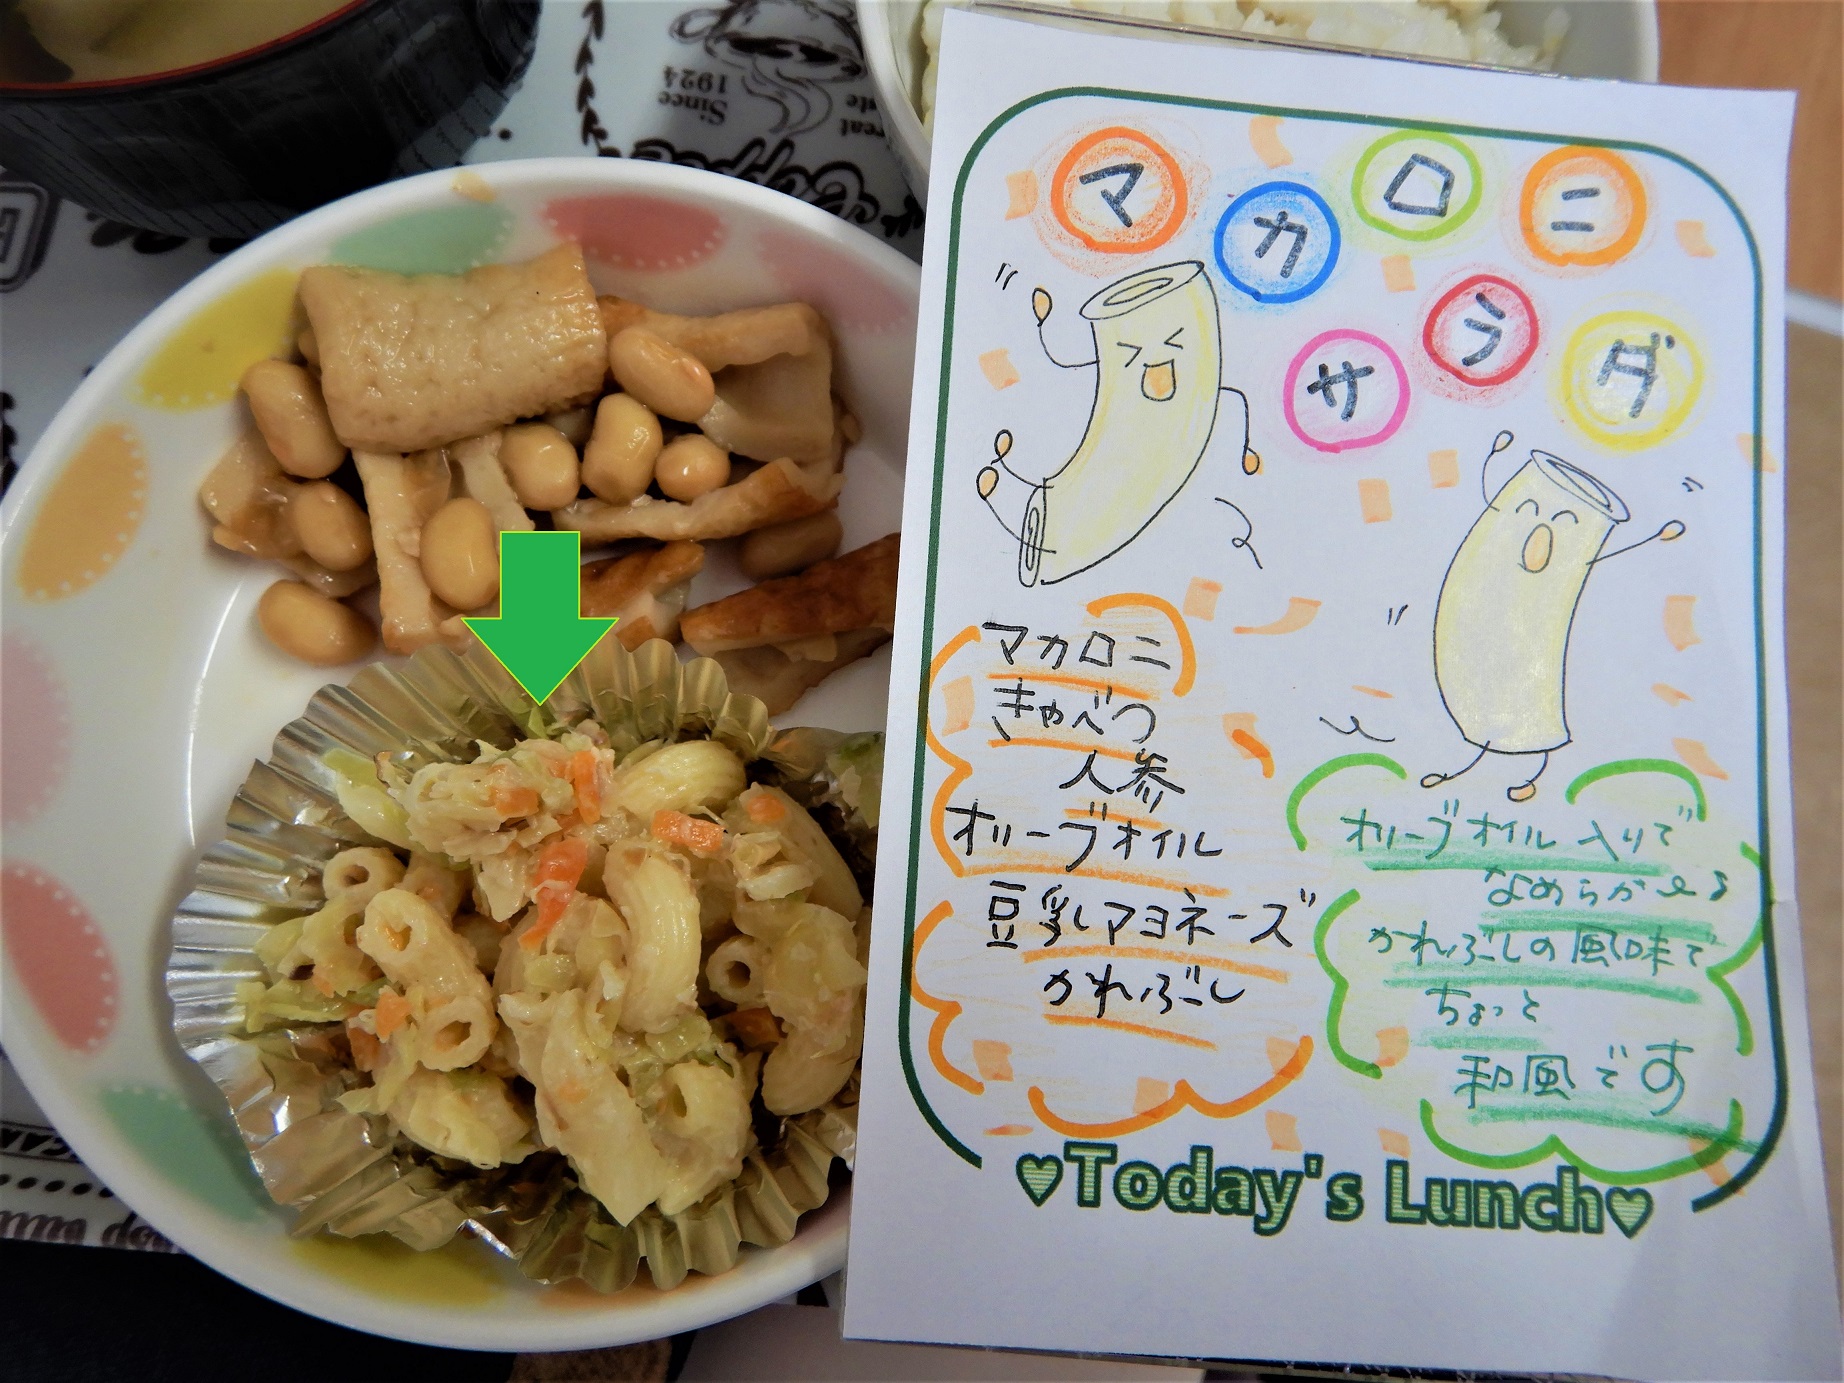 Since
1924
Coffee
マカロニ
サラダ
マカロニ
きゃべつ
人参
オリーブオイル
豆乳マヨネーズ
かれぶし
オリーブオイル入りで
なめらか〜♪
かれぶしの風味で
ちょっと
和風です
♥Today's Lunch♥